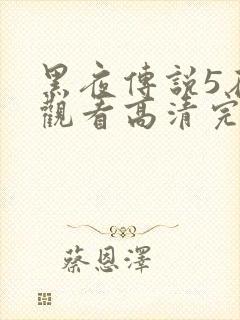 黑夜傳説5
觀看高清完
蔡恩澤